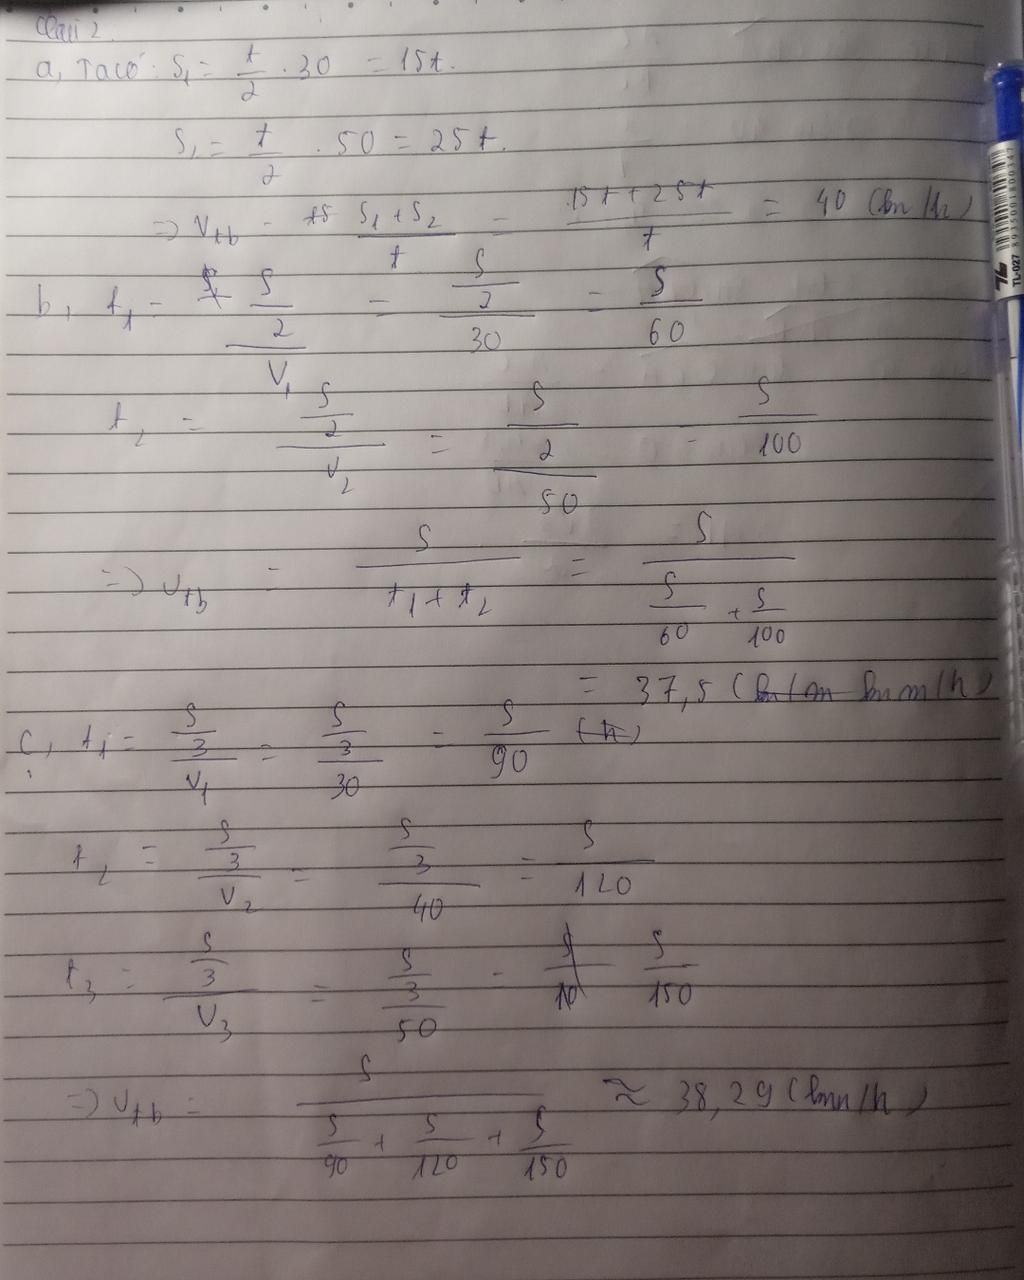 Bài 2.
a, Ta có: S₁ = t/2 . 30 = 15t.
S₁ = t/2 . 50 = 25t.
=> Vtb = (S₁ + S₂)/t = (15t + 25t)/t = 40 (km/h)
b, t₁ = (S/2)/V₁ = (S/2)/30 = S/60
t₂ = (S/2)/V₂ = (S/2)/50 = S/100
=> Vtb = S/(t₁ + t₂) = S/(S/60 + S/100)
= 37,5 (km/h)
c, t₁ = (S/3)/V₁ = (S/3)/30 = S/90 (h)
t₂ = (S/3)/V₂ = (S/3)/40 = S/120
t₃ = (S/3)/V₃ = (S/3)/50 = S/150
=> Vtb = S/(S/90 + S/120 + S/150) ≈ 38,29 (km/h)
TL-027